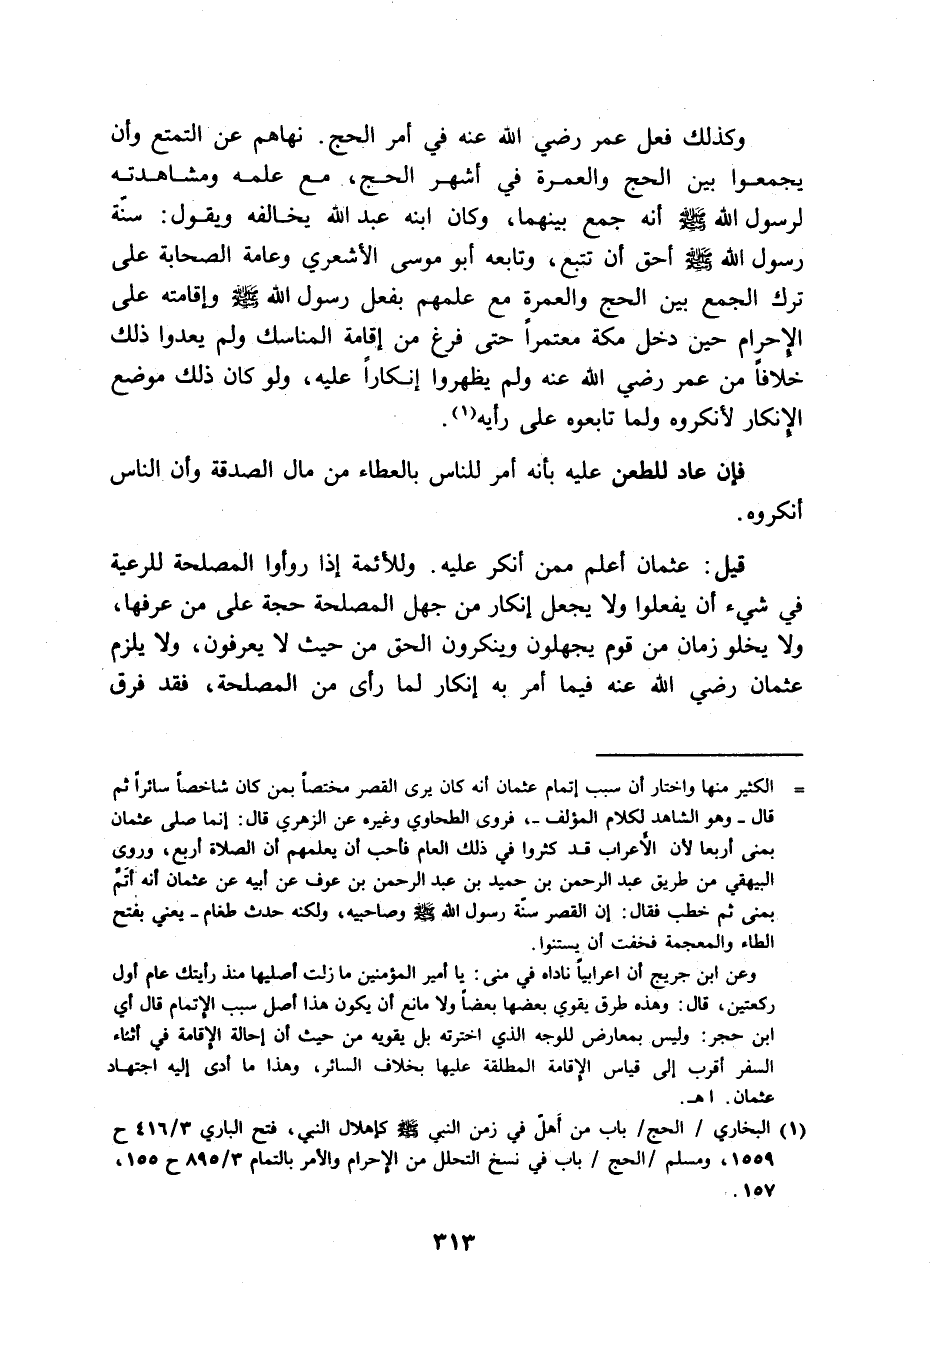 وكذلك فعل عمر رضي الله عنه في أمر الحج. نهاهم عن التمتع وأن
يجمعوا بين الحج والعمرة في أشهر الحج، مع علمه ومشاهدته
لرسول الله ﷺ أنه جمع بينهما، وكان ابنه عبد الله يخالفه ويقول: سنّة
رسول الله ﷺ أحق أن تتبع، وتابعه أبو موسى الأشعري وعامة الصحابة على
ترك الجمع بين الحج والعمرة مع علمهم بفعل رسول الله ﷺ وإقامته على
الإحرام حين دخل مكة معتمراً حتى فرغ من إقامة المناسك ولم يعدوا ذلك
خلافاً من عمر رضي الله عنه ولم يظهروا إنكاراً عليه، ولو كان ذلك موضع
الإنكار لأنكروه ولما تابعوه على رأيه(١).
فإن عاد للطعن عليه بأنه أمر للناس بالعطاء من مال الصدقة وأن الناس
أنكروه.
قيل: عثمان أعلم ممن أنكر عليه. وللأئمة إذا روأوا المصلحة للرعية
في شيء أن يفعلوا ولا يجعل إنكار من جهل المصلحة حجة على من عرفها،
ولا يخلو زمان من قوم يجهلون وينكرون الحق من حيث لا يعرفون، ولا يلزم
عثمان رضي الله عنه فيما أمر به إنكار لما رأى من المصلحة، فقد فرق
= الكثير منها واختار أن سبب إتمام عثمان أنه كان يرى القصر مختصاً بمن كان شاخصاً سائراً ثم
قال ـ وهو الشاهد لكلام المؤلف ـ، فروى الطحاوي وغيره عن الزهري قال: إنما صلى عثمان
بمنى أربعا لأن الأعراب قد كثروا في ذلك العام فأحب أن يعلمهم أن الصلاة أربع، وروى
البيهقي من طريق عبد الرحمن بن حميد بن عبد الرحمن بن عوف عن أبيه عن عثمان أنه أتمَّ
بمنى ثم خطب فقال: إن القصر سنّة رسول الله ﷺ وصاحبيه، ولكنه حدث طغام ـ يعني بفتح
الطاء والمعجمة فخفت أن يستنوا.
وعن ابن جريج أن اعرابياً ناداه في منى: يا أمير المؤمنين ما زلت أصليها منذ رأيتك عام أول
ركعتين، قال: وهذه طرق يقوي بعضها بعضاً ولا مانع أن يكون هذا أصل سبب الإتمام قال أي
ابن حجر: وليس بمعارض للوجه الذي اخترته بل يقويه من حيث أن إحالة الإقامة في أثناء
السفر أقرب إلى قياس الإقامة المطلقة عليها بخلاف السائر، وهذا ما أدى إليه اجتهاد
عثمان. ا هـ.
(١) البخاري / الحج/ باب من أهلّ في زمن النبي ﷺ كإهلال النبي، فتح الباري ٤١٦/٣ ح
١٥٥٩، ومسلم /الحج / باب في نسخ التحلل من الإحرام والأمر بالتمام ٨٩٥/٣ ح ١٥٥،
١٥٧.
٣١٣